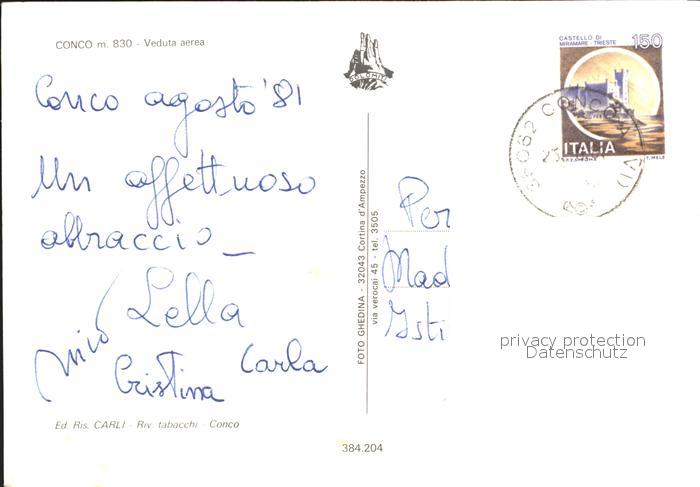 CONCO m. 830 - Veduta aerea
Conco agosto '81
Un affettuoso
abbraccio
Lella
Carla
Cristina
Ed. Ris. CARLI - Riv. tabacchi - Conco
DOLOMITI
FOTO GHEDINA - 32043 Cortina d'Ampezzo
via verocai 45 - tel. 3505
384.204
CASTELLO DI
MIRAMARE - TRIESTE
150
ITALIA
36062 CONCO (VI)
Per
Mad
Isti
privacy protection
Datenschutz